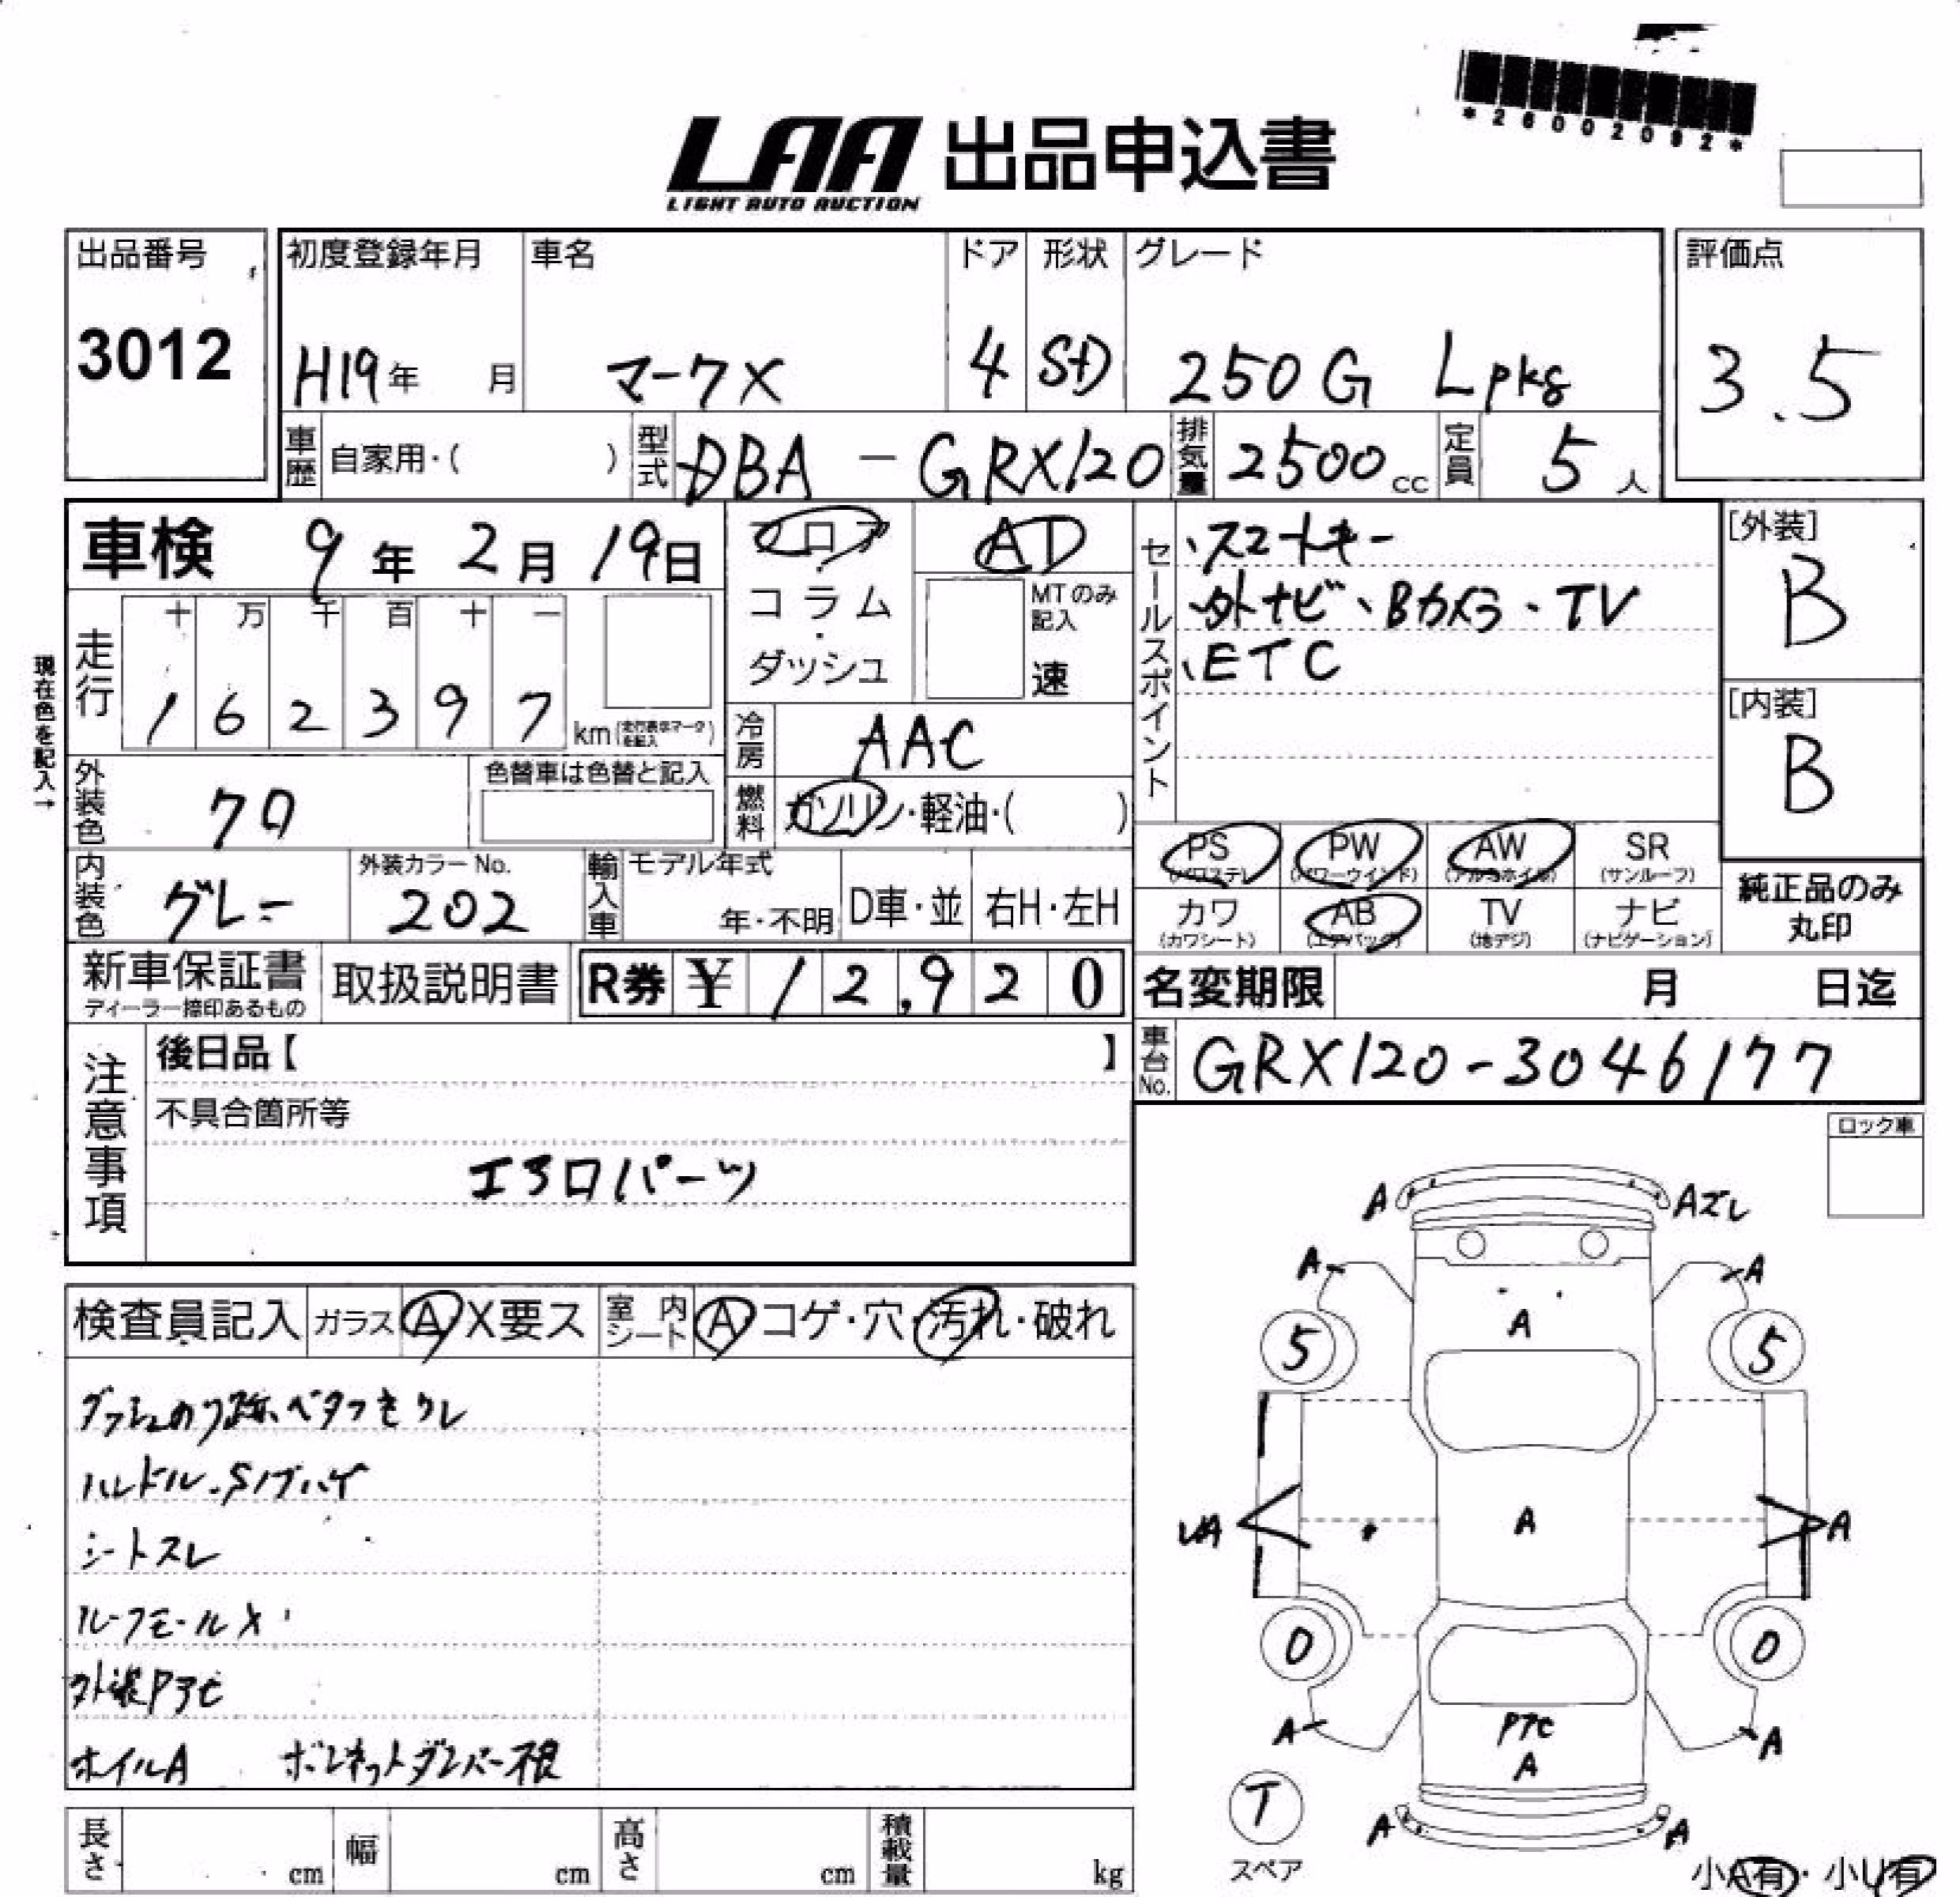 *26002092*
LAA 出品申込書
LIGHT AUTO AUCTION
出品番号
3012
初度登録年月
H19年 月
車名
マークX
ドア
4
形状
SD
グレード
250G Lpkg
評価点
3.5
車歴 自家用・( )
型式 DBA - GRX120
排気量 2500cc
定員 5人
車検 9年 2月 19日
フロア
・
コラム
・
ダッシュ
AT
MTのみ記入
速
現在色を記入→
走行
十 万 千 百 十 一
1 6 2 3 9 7 km (走行表示マークを記入)
冷房 AAC
燃料 ガソリン・軽油・( )
外装色 クロ
色替車は色替と記入
内装色 グレー
外装カラーNo.
202
輸入車 モデル年式
年・不明 D車・並 右H・左H
セールスポイント
、スマートキー
、外ナビ、Bカメラ・TV
、ETC
[外装]
B
[内装]
B
PS (パワステ)
PW (パワーウインド)
AW (アルミホイル)
SR (サンルーフ)
カワ (カワシート)
AB (エアバッグ)
TV (地デジ)
ナビ (ナビゲーション)
純正品のみ
丸印
新車保証書
ディーラー捺印あるもの
取扱説明書
R券 ¥ 12,920
名変期限 月 日迄
車台No. GRX120-3046177
注意事項
後日品【 】
不具合箇所等
エアロパーツ
ロック車
検査員記入 ガラス A X要ス
室内シート A コゲ・穴・汚れ・破れ
ハンドル・Sノブハゲ
シートスレ
ルーフモールX
ホイルA ボンネットダンパー不良
A
Aズレ
A
A
A
5
5
A
A
0
0
A
A
A
A
A
A
T
スペア
長さ cm
幅 cm
高さ cm
積載量 kg
小A有・小U有